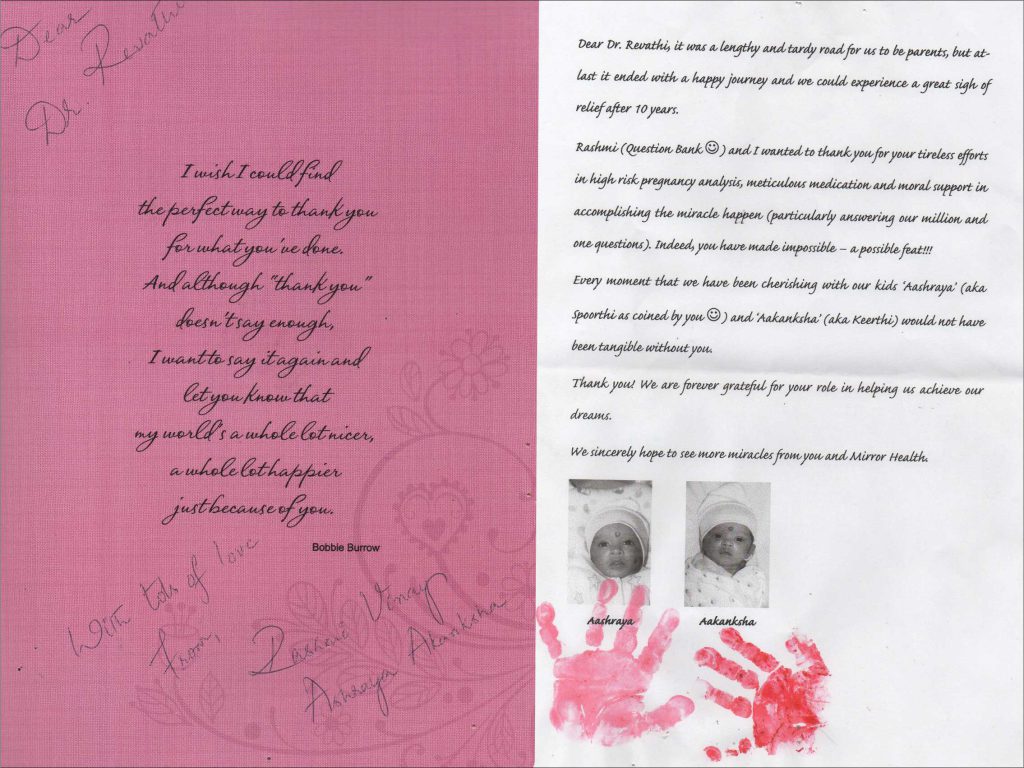 Dear
Dr. Revathi
I wish I could find
the perfect way to thank you
for what you've done.
And although "thank you"
doesn't say enough,
I want to say it again and
let you know that
my world's a whole lot nicer,
a whole lot happier
just because of you.
Bobbie Burrow
With lots of love
from,
Rashmi Vinay
Ashraya Akanksha
Dear Dr. Revathi, it was a lengthy and tardy road for us to be parents, but at-
last it ended with a happy journey and we could experience a great sigh of
relief after 10 years.
Rashmi (Question Bank ☺) and I wanted to thank you for your tireless efforts
in high risk pregnancy analysis, meticulous medication and moral support in
accomplishing the miracle happen (particularly answering our million and
one questions). Indeed, you have made impossible – a possible feat!!!
Every moment that we have been cherishing with our kids ‘Aashraya’ (aka
Spoorthi as coined by you ☺) and ‘Aakanksha’ (aka Keerthi) would not have
been tangible without you.
Thank you! We are forever grateful for your role in helping us achieve our
dreams.
We sincerely hope to see more miracles from you and Mirror Health.
Aashraya Aakanksha